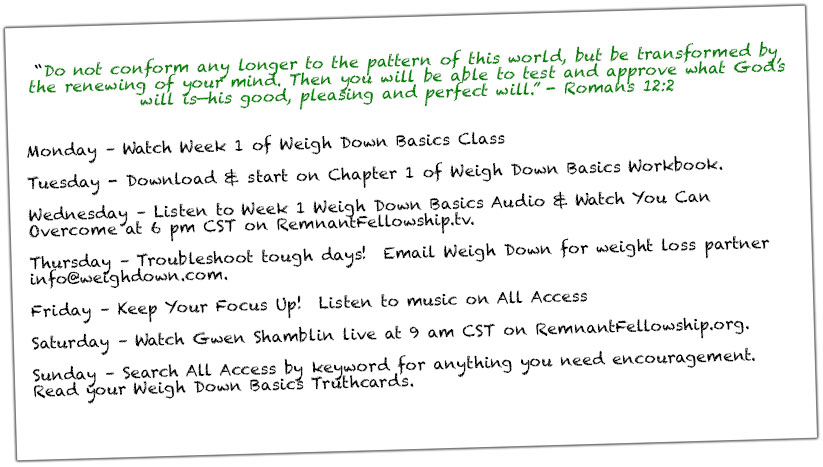 “Do not conform any longer to the pattern of this world, but be transformed by
the renewing of your mind. Then you will be able to test and approve what God's
will is—his good, pleasing and perfect will.” - Romans 12:2
Monday - Watch Week 1 of Weigh Down Basics Class
Tuesday - Download & start on Chapter 1 of Weigh Down Basics Workbook.
Wednesday - Listen to Week 1 Weigh Down Basics Audio & Watch You Can
Overcome at 6 pm CST on RemnantFellowship.tv.
Thursday - Troubleshoot tough days! Email Weigh Down for weight loss partner
info@weighdown.com.
Friday - Keep Your Focus Up! Listen to music on All Access
Saturday - Watch Gwen Shamblin live at 9 am CST on RemnantFellowship.org.
Sunday - Search All Access by keyword for anything you need encouragement.
Read your Weigh Down Basics Truthcards.